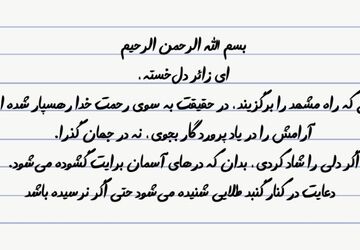 بسم الله الرحمن الرحیم
ای زائر دل‌خسته،
که راه مشهد را برگزیند، در حقیقت به سوی رحمت خدا رهسپار شده
آرامش را در یاد پروردگار بجوی، نه در جهان گذرا.
اگر دلی را شاد کردی، بدان که درهای آسمان برایت گشوده می‌شود.
دعایت در کنار گنبد طلایی شنیده می‌شود حتی اگر نرسیده باشد